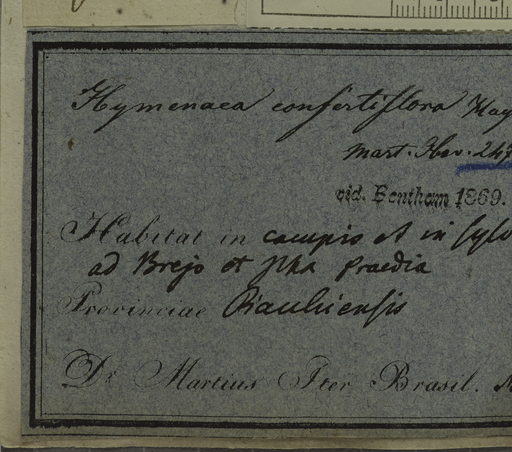 Hymenaea confertiflora Hay
Mart. Obs. 24
vid. Bentham 1869.
Habitat in campis et in sylv
ad Brejo et praedia
Provinciae Piauhiensis
Dr. Martius Iter Brasil.